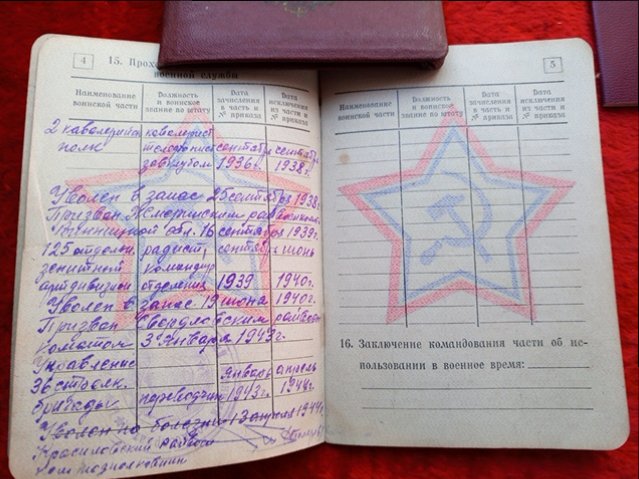 4
15. Прох
военной службы
Наименование воинской части
Должность и воинское звание по штату
Дата зачисления в часть и № приказа
Дата исключения из части и № приказа
2 кавалерийск кавалерист
полк сентябрь сентябр
1936г. 1938г.
Уволен в запас 25 сентября 1938г.
Призван Жмеринским рай
Винницкой обл. 16 сентября 1939г.
125 отдельн. радист, сентяб июнь
зенитный командир
артдивизион отделения 1939 1940г.
Уволен в запас 19 июня 1940г.
Призван Свердловским
3 Января 1943г.
Управление
36 стрелк. Январь апрель
бригады переводчик 1943г. 1944г.
Уволен по болезни 1 Апреля 1944г.
Красиловский
5
Наименование воинской части
Должность и воинское звание по штату
Дата зачисления в часть и № приказа
Дата исключения из части и № приказа
16. Заключение командования части об ис-
пользовании в военное время: